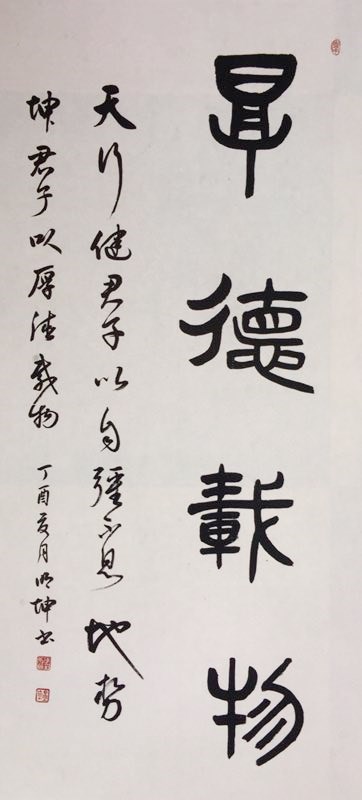 厚德載物
天行健君子以自彊不息地势
坤君子以厚德載物
丁酉夏月明坤书